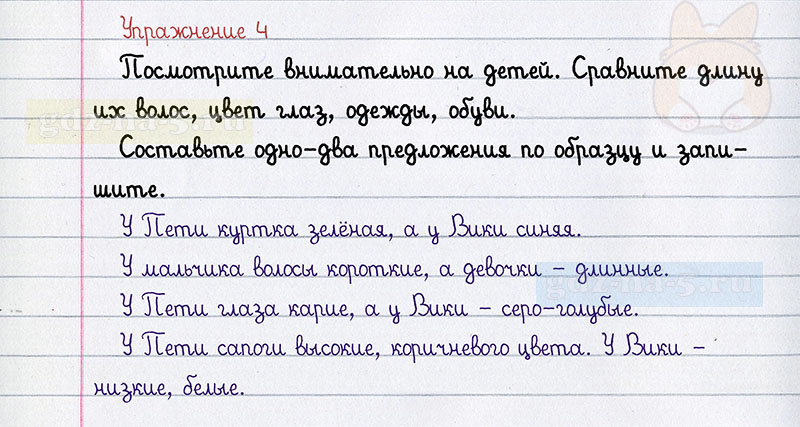 Упражнение 4
Посмотрите внимательно на детей. Сравните длину
их волос, цвет глаз, одежды, обуви.
Составьте одно-два предложения по образцу и запи-
шите.
У Пети куртка зелёная, а у Вики синяя.
У мальчика волосы короткие, а девочки - длинные.
У Пети глаза карие, а у Вики - серо-голубые.
У Пети сапоги высокие, коричневого цвета. У Вики -
низкие, белые.
gdz-na-5.ru
gdz-na-5.ru